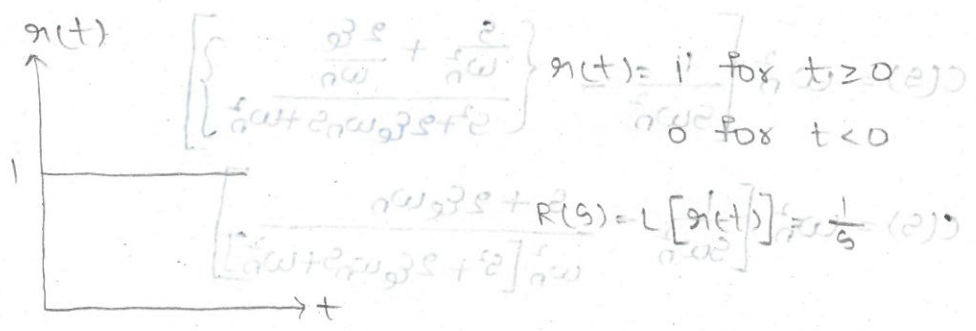 r(t)
r(t) = 1 for t ≥ 0
0 for t < 0
1
R(s) = L [r(t)] = 1/s
t